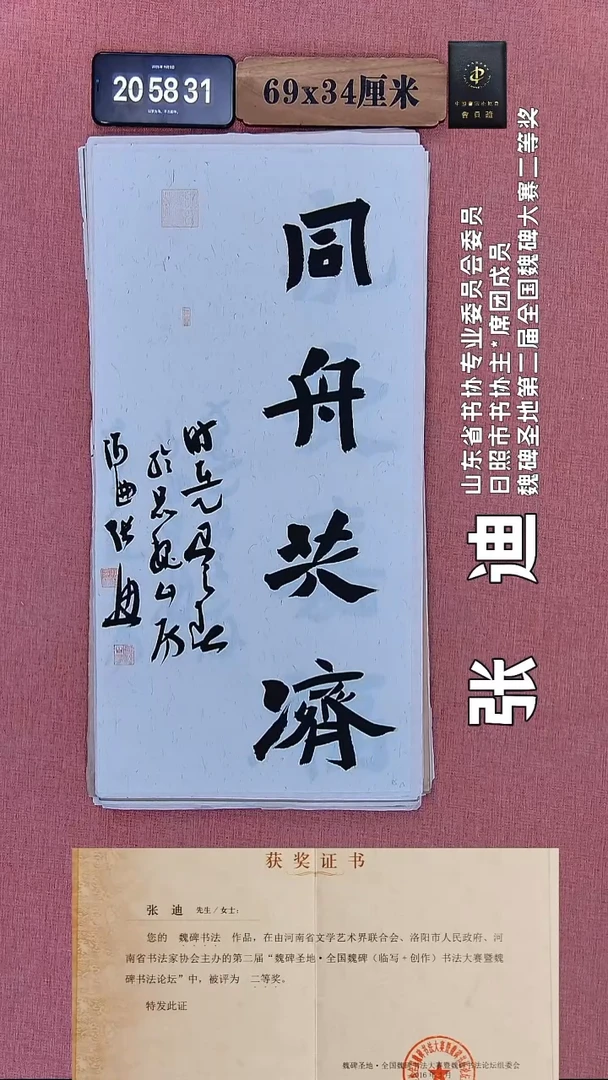 20 58 31
69x34厘米
同舟共济
张迪
山东省书协专业委员会委员
日照市书协主*席团成员
魏碑圣地第二届全国魏碑大赛二等奖
获奖证书
张 迪 先生/女士:
您的 魏碑书法 作品，在由河南省文学艺术界联合会、洛阳市人民政府、河
南省书法家协会主办的第二届“魏碑圣地·全国魏碑（临写+创作）书法大赛暨魏
碑书法论坛”中，被评为 二等奖。
特发此证
魏碑圣地·全国魏碑书法大赛暨魏碑书法论坛组委会